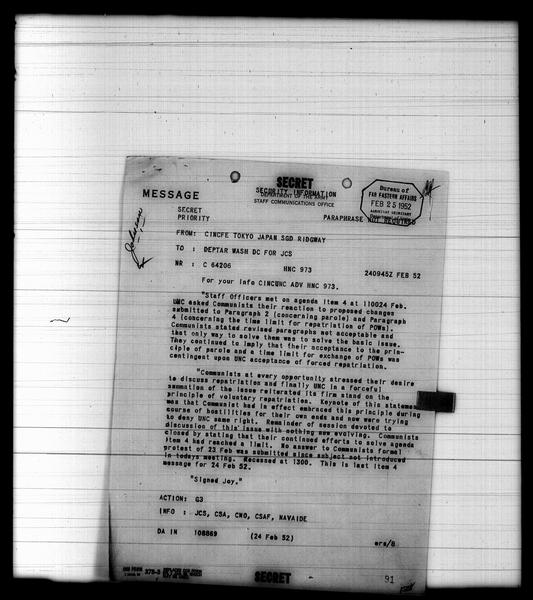 SECRET
SECURITY INFORMATION
DEPARTMENT OF THE ARMY
STAFF COMMUNICATIONS OFFICE
MESSAGE
Bureau of
FAR EASTERN AFFAIRS
FEB 25 1952
Department of State
SECRET
PRIORITY
PARAPHRASE NOT REQUIRED
FROM: CINCFE TOKYO JAPAN SGD RIDGWAY
TO : DEPTAR WASH DC FOR JCS
NR : C 64206 HNC 973 240945Z FEB 52
For your info CINCUNC ADV HNC 973.
"Staff Officers met on agenda item 4 at 110024 Feb.
UNC asked Communists their reaction to proposed changes
submitted to Paragraph 2 (concerning parole) and Paragraph
4 (concerning the time limit for repatriation of POWs).
Communists stated revised paragraphs not acceptable and
that only way to solve them was to solve the basic issue.
They continued to imply that their acceptance to the prin-
ciple of parole and a time limit for exchange of POWs was
contingent upon UNC acceptance of forced repatriation.
"Communists at every opportunity stressed their desire
to discuss repatriation and finally UNC in a forceful
summation of the issue reiterated its firm stand on the
principle of voluntary repatriation. Keynote of this statement
was that Communist had in effect embraced this principle during
course of hostilities for their own ends and now were trying
to deny UNC same right. Remainder of session devoted to
discussion of this issue with nothing new evolving. Communists
closed by stating that their continued efforts to solve agenda
item 4 had reached a limit. No answer to Communists formal
protest of 23 Feb was submitted since subject not introduced
in todays meeting. Recessed at 1300. This is last item 4
message for 24 Feb 52.
"Signed Joy."
ACTION: G3
INFO : JCS, CSA, CNO, CSAF, NAVAIDE
DA IN 108869 (24 Feb 52)
ers/8
375-3
SECRET
91